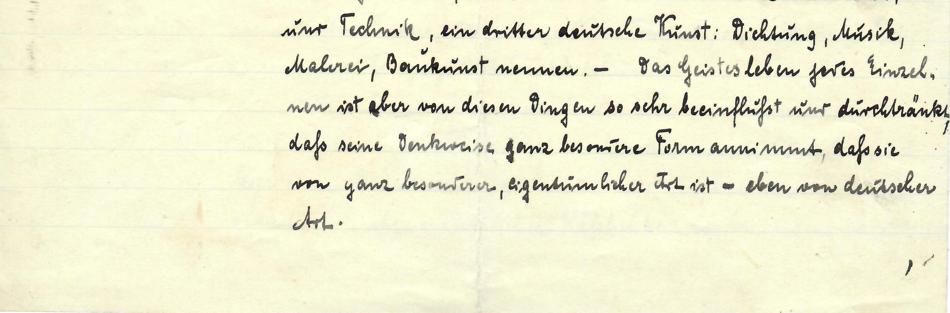 und Technik, ein dritter deutsche Kunst: Dichtung, Musik,
Malerei, Baukunst nennen. — Das Geistesleben jedes Einzel-
nen ist aber von diesen Dingen so sehr beeinflußt und durchtränkt,
daß seine Denkweise ganz besondere Form annimmt, daß sie
von ganz besonderer, eigentümlicher Art ist — eben von deutscher
Art.